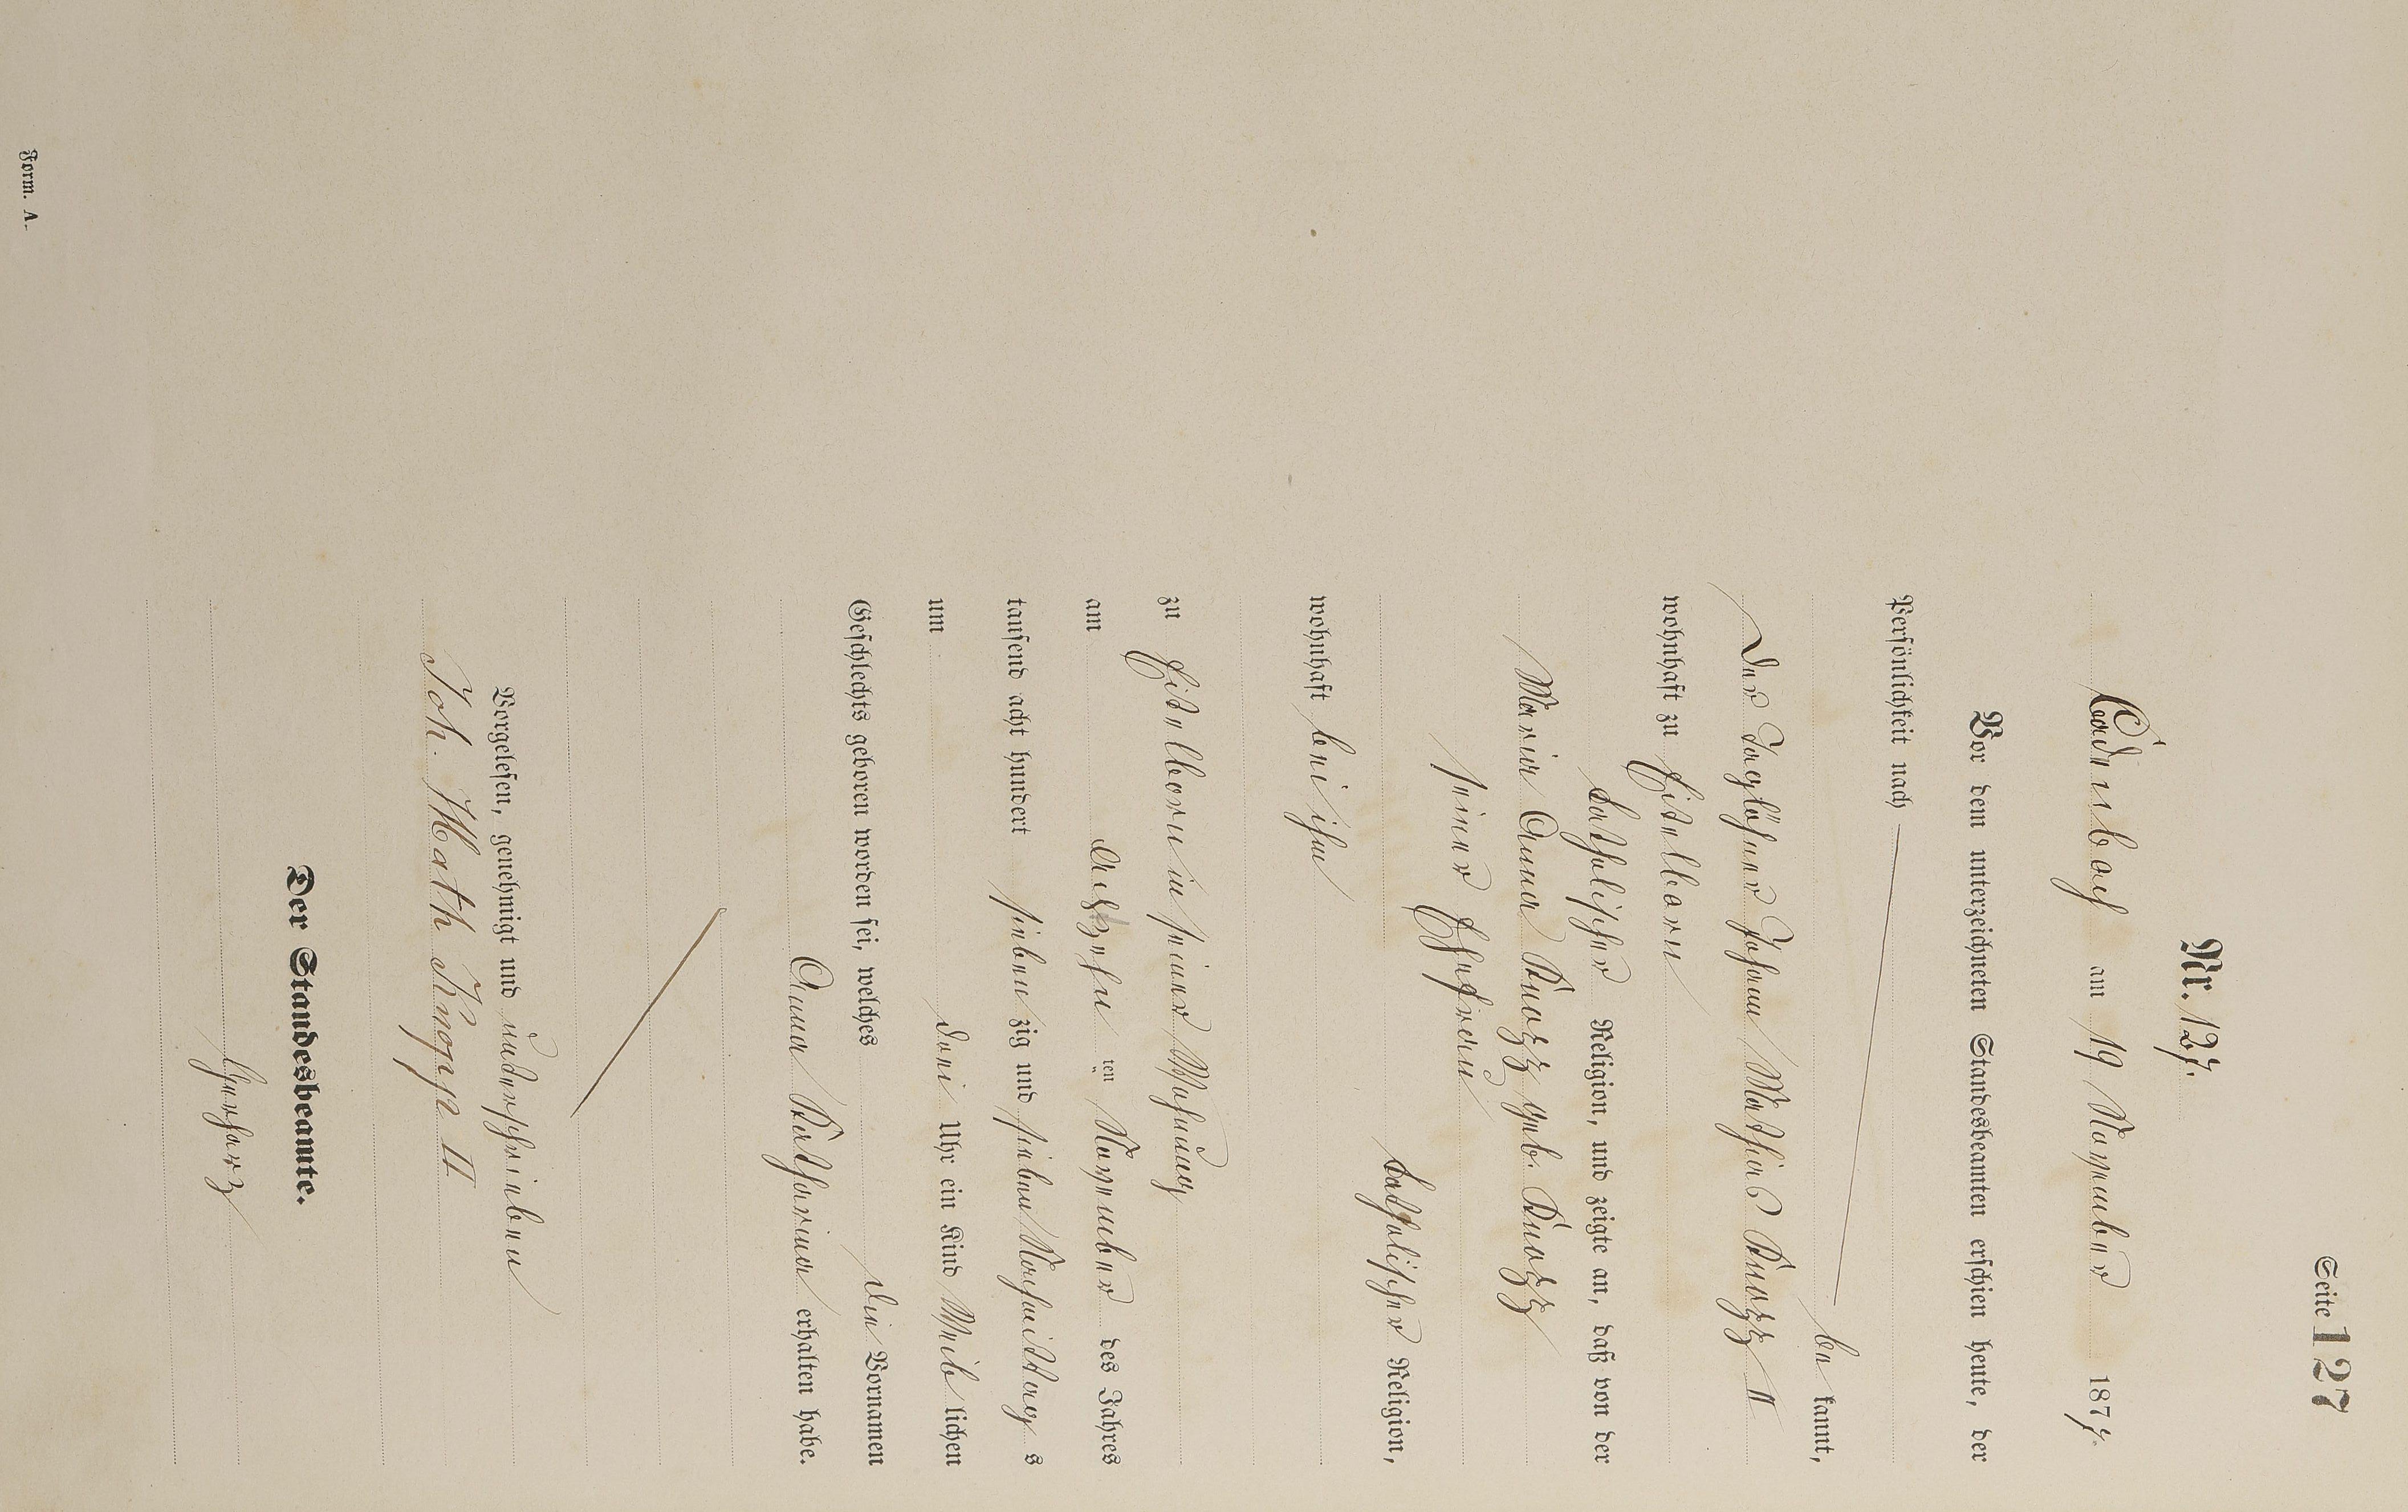 Seite 127
Nr. 127.
Cadenbach am 19 November 1877.
Vor dem unterzeichneten Standesbeamten erschien heute, der
Persönlichkeit nach
be kannt,
der Taglöhner Johann Mathias Knopp II
wohnhaft zu Eitelborn
katholischer Religion, und zeigte an, daß von der
Maria Anna Knopp geb. Knopp
seiner Ehefrau
katholischer Religion,
wohnhaft bei ihm
zu Eitelborn in seiner Wohnung
am achtzehn ten November des Jahres
tausend acht hundert sieben zig und sieben Nachmittag s
um drei Uhr ein Kind Weib lichen
Geschlechts geboren worden sei, welches die Vornamen
Anna Katharina erhalten habe.
Vorgelesen, genehmigt und unterschrieben
Joh. Math Knopp II
Der Standesbeamte.
Form. A.